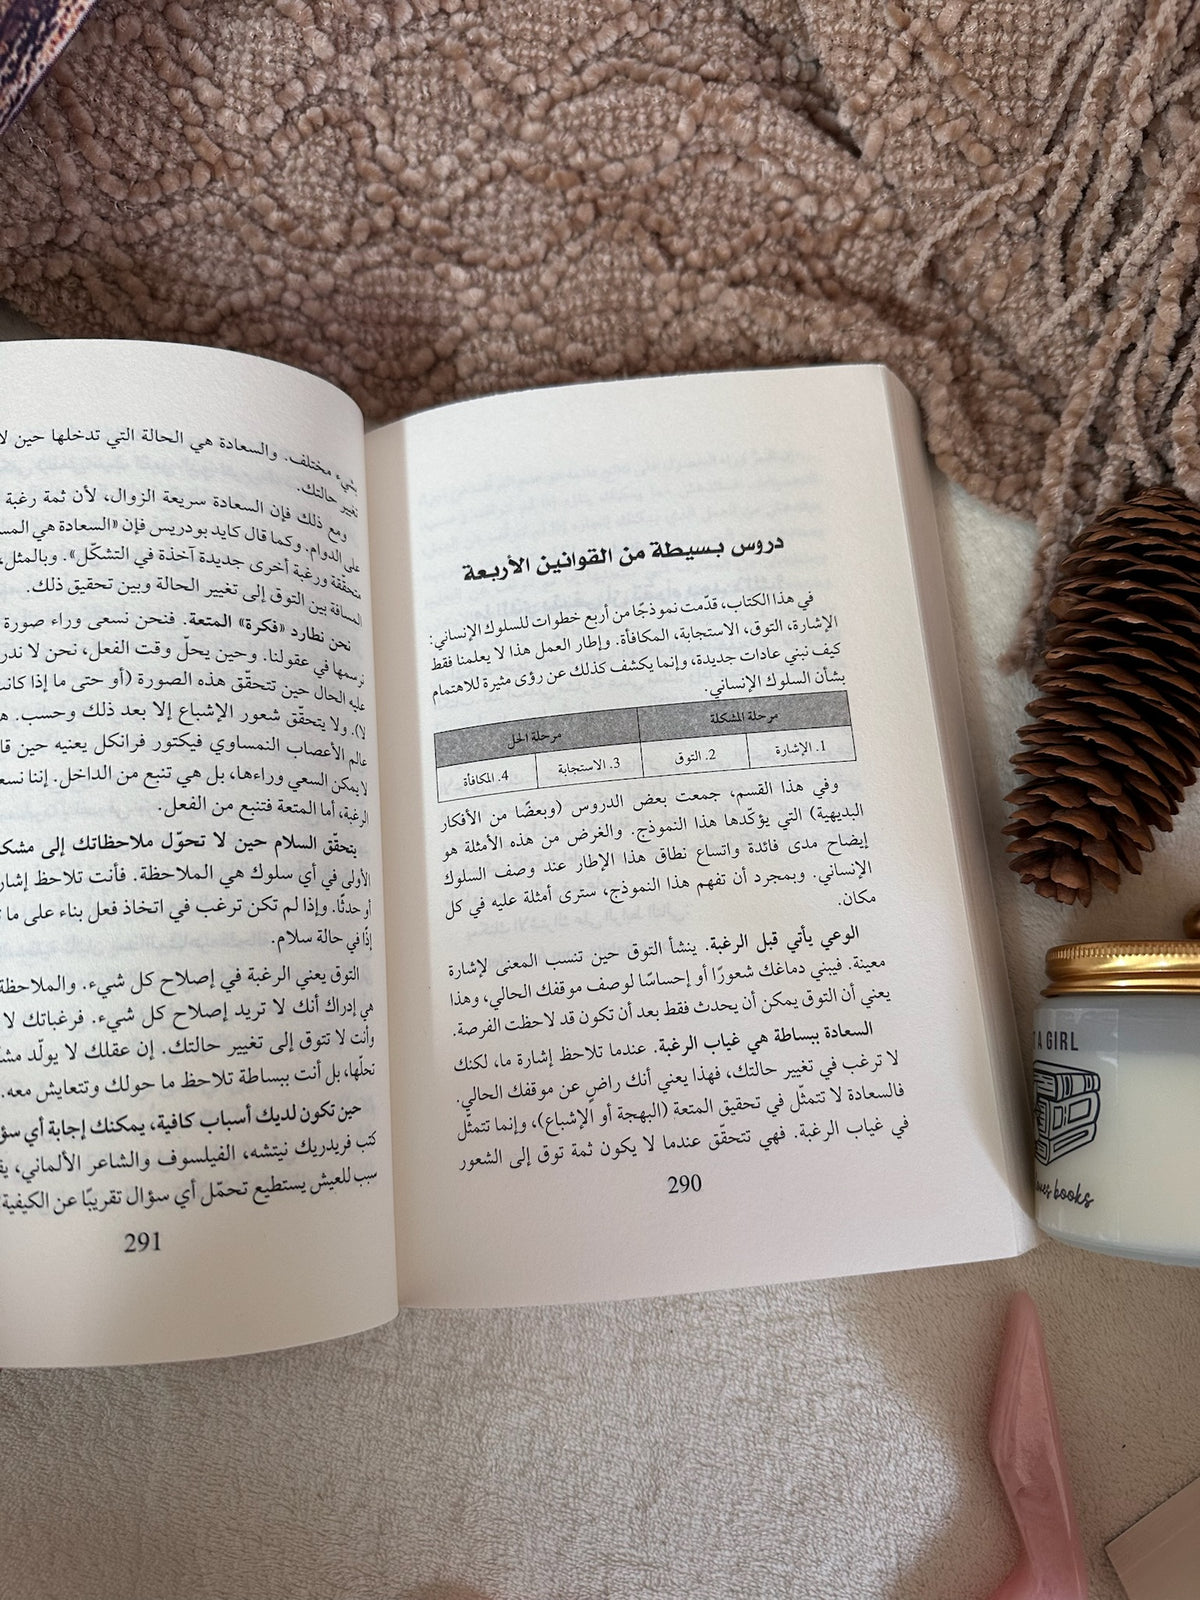 دروس بسيطة من القوانين الأربعة
في هذا الكتاب، قدّمت نموذجًا من أربع خطوات للسلوك الإنساني:
الإشارة، التوق، الاستجابة، المكافأة. وإطار العمل هذا لا يعلمنا فقط
كيف نبني عادات جديدة، وإنما يكشف كذلك عن رؤى مثيرة للاهتمام
بشأن السلوك الإنساني.
مرحلة المشكلة مرحلة الحل
1. الإشارة 2. التوق 3. الاستجابة 4. المكافأة
وفي هذا القسم، جمعت بعض الدروس (وبعضًا من الأفكار
البديهية) التي يؤكّدها هذا النموذج. والغرض من هذه الأمثلة هو
إيضاح مدى فائدة واتساع نطاق هذا الإطار عند وصف السلوك
الإنساني. وبمجرد أن تفهم هذا النموذج، سترى أمثلة عليه في كل
مكان.
الوعي يأتي قبل الرغبة. ينشأ التوق حين تنسب المعنى لإشارة
معينة. فيبني دماغك شعورًا أو إحساسًا لوصف موقفك الحالي، وهذا
يعني أن التوق يمكن أن يحدث فقط بعد أن تكون قد لاحظت الفرصة.
السعادة ببساطة هي غياب الرغبة. عندما تلاحظ إشارة ما، لكنك
لا ترغب في تغيير حالتك، فهذا يعني أنك راضٍ عن موقفك الحالي.
فالسعادة لا تتمثّل في تحقيق المتعة (البهجة أو الإشباع)، وإنما تتمثّل
في غياب الرغبة. فهي تتحقّق عندما لا يكون ثمة توق إلى الشعور
290
بشيء مختلف. والسعادة هي الحالة التي تدخلها حين لا
تغيير حالتك.
ومع ذلك فإن السعادة سريعة الزوال، لأن ثمة رغبة
على الدوام. وكما قال كايد بودريس فإن «السعادة هي
متحقّقة ورغبة أخرى جديدة آخذة في التشكّل». وبالمثل،
المسافة بين التوق إلى تغيير الحالة وبين تحقيق ذلك.
نحن نطارد «فكرة» المتعة. فنحن نسعى وراء صورة
نرسمها في عقولنا. وحين يحلّ وقت الفعل، نحن لا
عليه الحال حين تتحقّق هذه الصورة (أو حتى ما إذا
لا). ولا يتحقّق شعور الإشباع إلا بعد ذلك وحسب.
عالم الأعصاب النمساوي فيكتور فرانكل يعنيه حين
لا يمكن السعي وراءها، بل هي تنبع من الداخل. إننا
الرغبة، أما المتعة فتنبع من الفعل.
يتحقّق السلام حين لا تحوّل ملاحظاتك إلى
الأولى في أي سلوك هي الملاحظة. فأنت تلاحظ
أو حدثًا. وإذا لم تكن ترغب في اتخاذ فعل بناء على ما
إذًا في حالة سلام.
التوق يعني الرغبة في إصلاح كل شيء. والملاحظة
هي إدراك أنك لا تريد إصلاح كل شيء. فرغباتك لا
وأنت لا تتوق إلى تغيير حالتك. إن عقلك لا يولّد
نحلّها، بل أنت ببساطة تلاحظ ما حولك وتتعايش معه.
حين تكون لديك أسباب كافية، يمكنك إجابة أي
كتب فريدريك نيتشه، الفيلسوف والشاعر الألماني،
سبب للعيش يستطيع تحمّل أي سؤال تقريبًا عن الكيفية
291
A GIRL
books